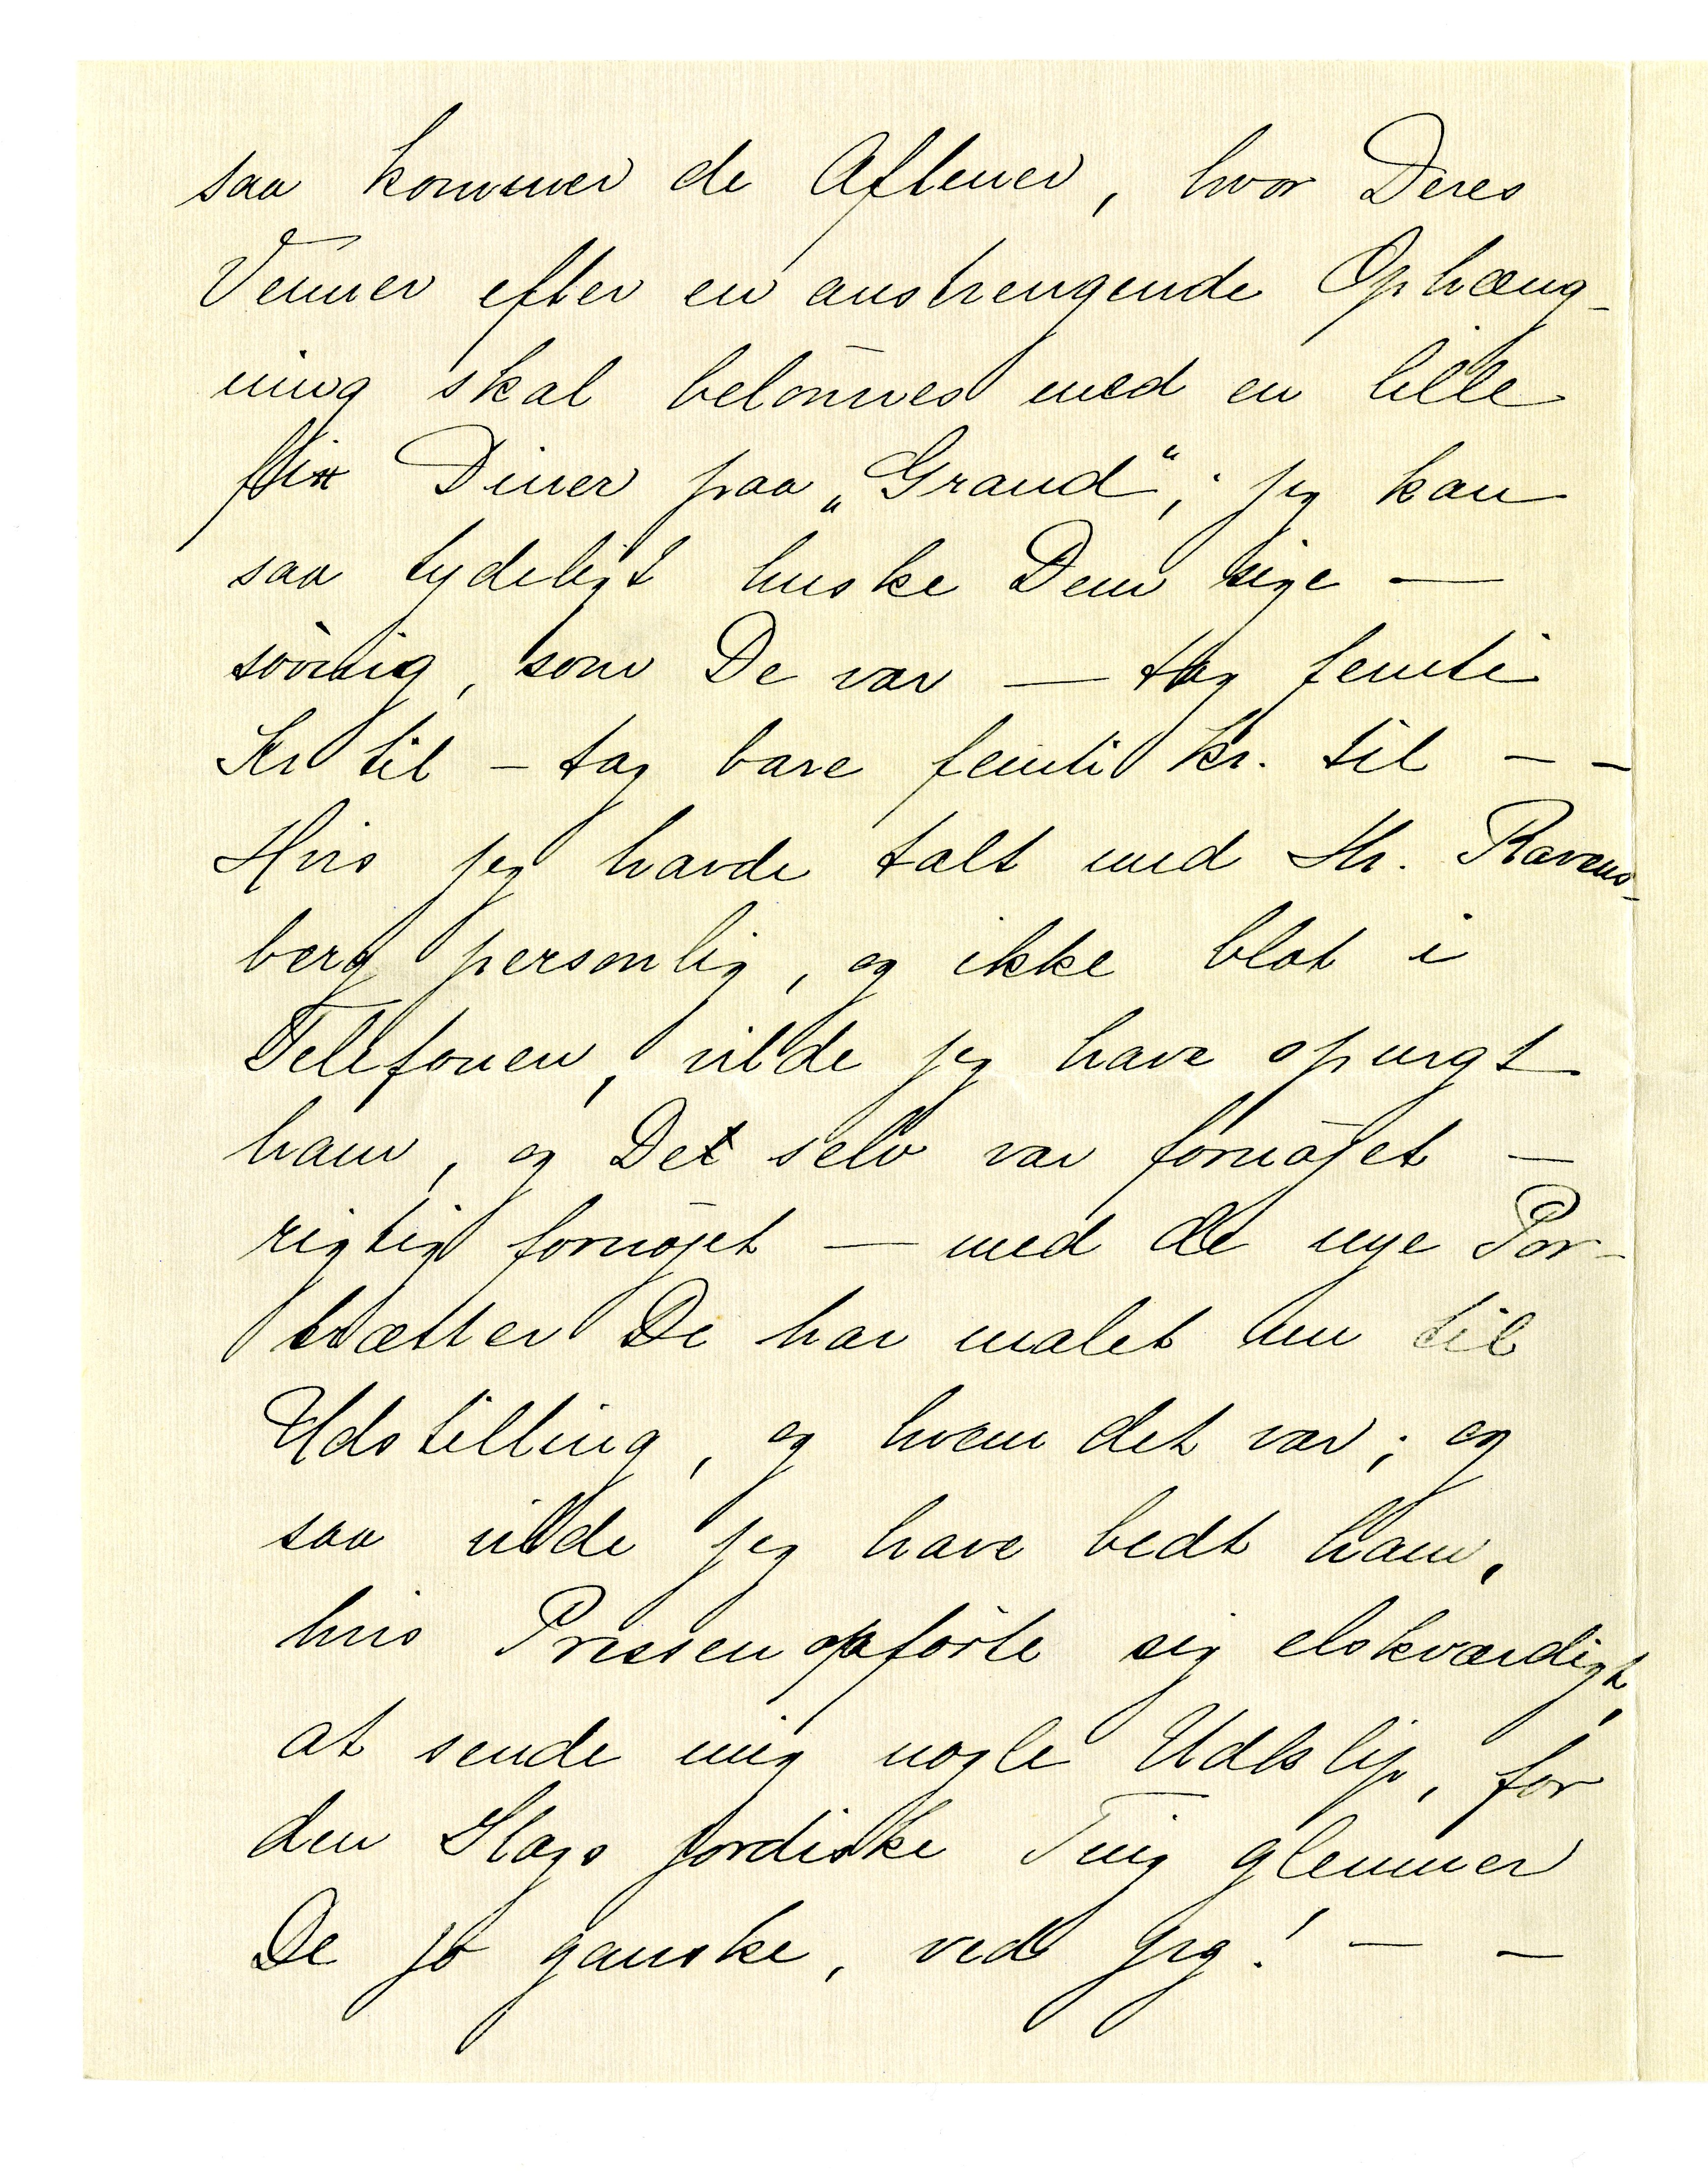 saa kommer de Aftener, hvor Deres
Venner efter en anstrengende Ophæng-
ning skal belønnes med en lille
flix Diner paa „Grand“; jeg kan
saa tydeligt huske Dem sige —
søvnig, som De var — tag femti
Kr til – tag bare femti kr. til – –
Hvis jeg havde talt med Hr. Ravens-
berg personlig, og ikke blot i
Telefonen, vilde jeg have spurgt
ham, og Det selv var fornøjet —
rigtig fornøjet — med de nye Por-
trætter De har malet nu til
Udstilling, og hvem det var; og
saa vilde jeg have bedt ham,
hvis Pressen opførte sig elskværdigt,
at sende mig nogle Udklip, for
den Slags jordiske Ting glemmer
De jo ganske, ved jeg! — —